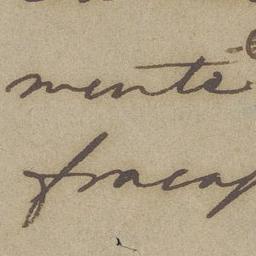 mente
fracas